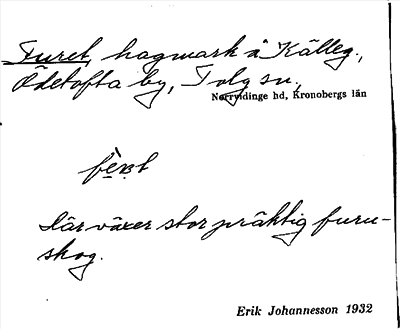 Furet, hagmark å Källeg.,
Ödetofta by, Tolg sn,
Norrvidinge hd, Kronobergs län
Där växer stor präktig furu-
skog.
Erik Johannesson 1932